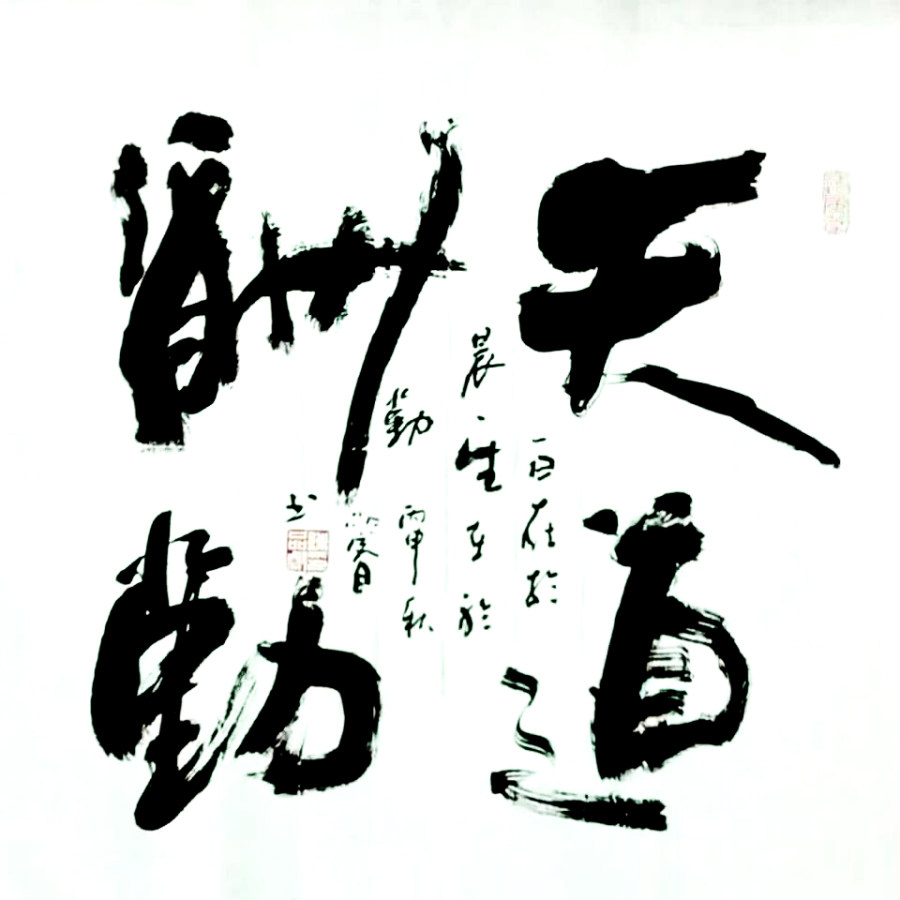 天道
酬勤
一日在於
晨一生在於
勤 丙申秋
书